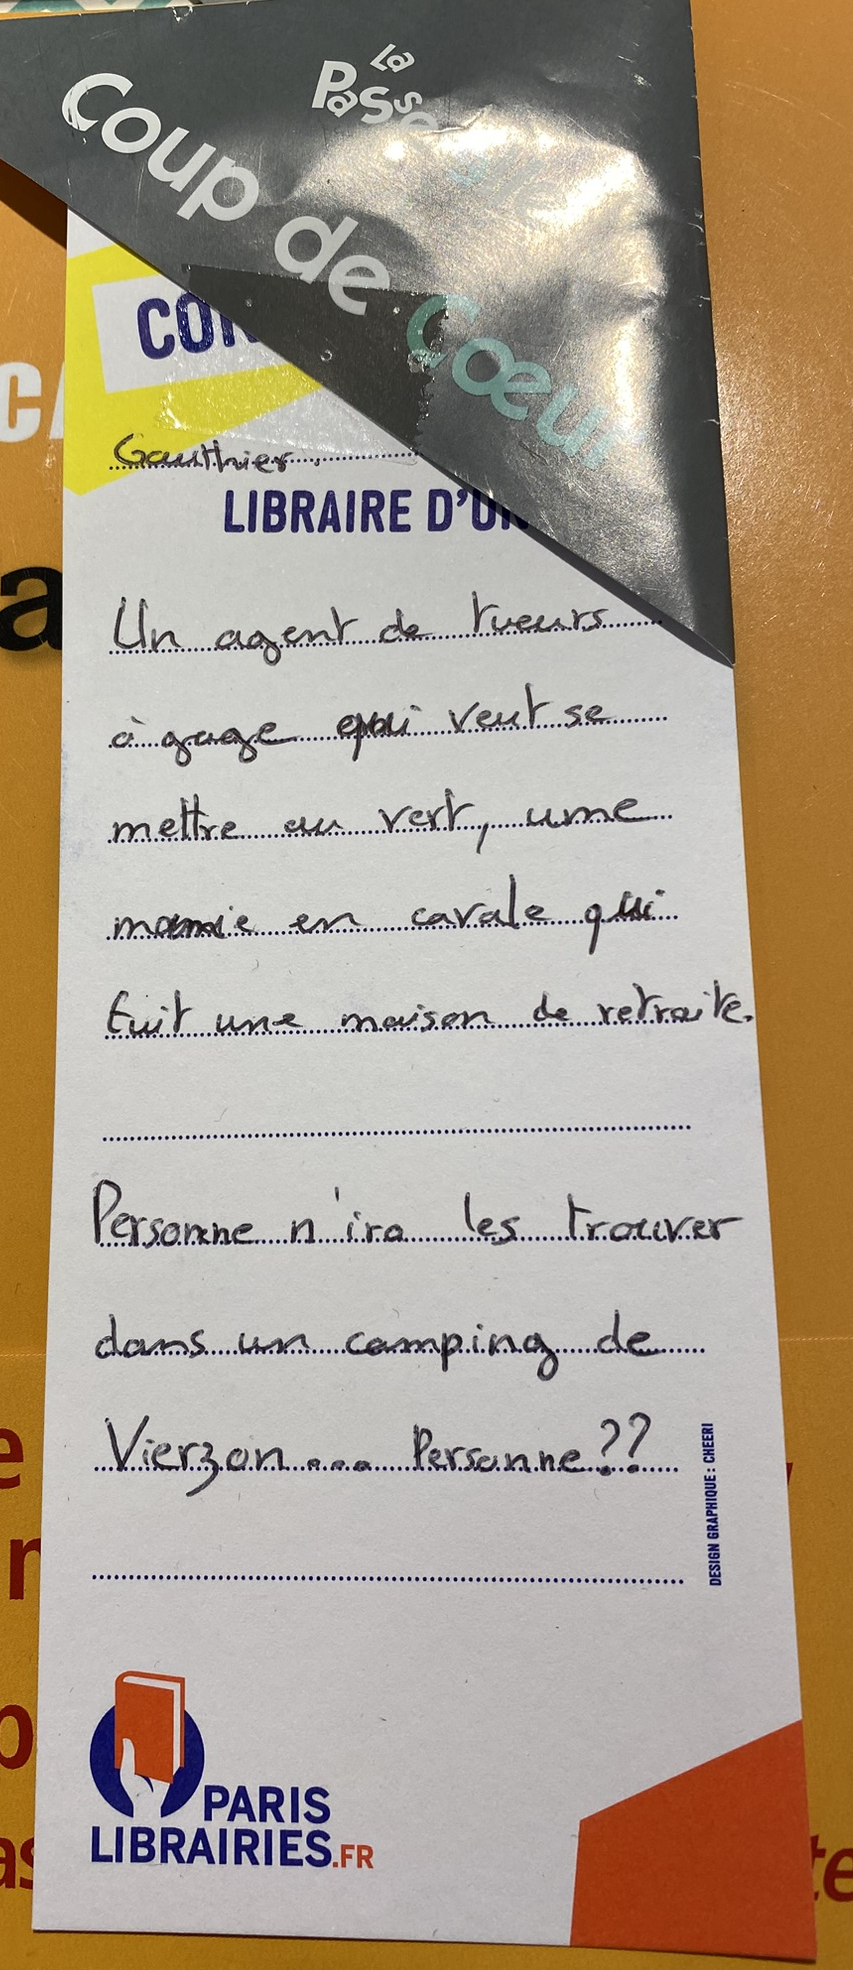 La
Passerelle
Coup de Cœur
CON
Gauthier
LIBRAIRE D'UN
Un agent de tueurs
à gage qui veut se
mettre au vert, une
mamie en cavale qui
fuit une maison de retraite.
Personne n'ira les trouver
dans un camping de
Vierzon... Personne??
DESIGN GRAPHIQUE : CHEERI
PARIS
LIBRAIRIES.FR